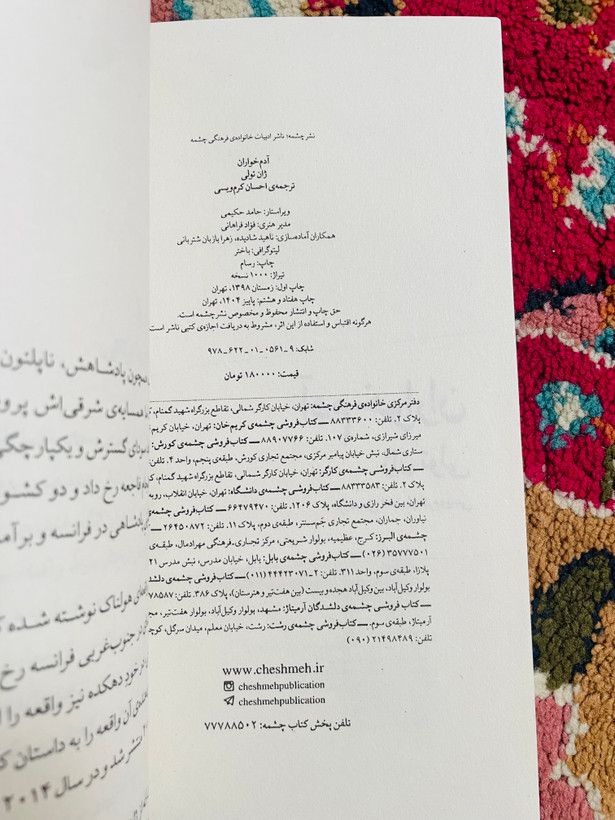 نشرچشمه: ناشر ادبیات خانواده‌ی فرهنگی چشمه
آدم‌خواران
ژان تولی
ترجمه‌ی احسان کرم‌ویسی
ویراستار: حامد حکیمی
مدیر هنری: فؤاد فراهانی
همکاران آماده‌سازی: ناهید شادیده، زهرا بازیان شتربانی
لیتوگرافی: باختر
چاپ: رسام
تیراژ: ۱۰۰۰ نسخه
چاپ اول: زمستان ۱۳۹۸، تهران
چاپ هفتاد و هشتم: پاییز ۱۴۰۴، تهران
حق چاپ و انتشار محفوظ و مخصوص نشرچشمه است.
هرگونه اقتباس و استفاده از این اثر، مشروط به دریافت اجازه‌ی کتبی ناشر است
شابک: ۹-۰۵۶۱-۰۱-۶۲۲-۹۷۸
قیمت: ۱۸۰۰۰۰ تومان
دفتر مرکزی خانواده‌ی فرهنگی چشمه: تهران، خیابان کارگر شمالی، تقاطع بزرگراه شهید گمنام،
پلاک ۲. تلفن: ۸۸۳۳۳۶۰۰ — کتاب‌فروشی چشمه‌ی کریم‌خان: تهران، خیابان کریم
میرزای شیرازی، شماره‌ی ۱۰۷. تلفن: ۸۸۹۰۷۷۶۶ — کتاب‌فروشی چشمه‌ی کورش:
ستاری شمال، نبش خیابان پیامبر مرکزی، مجتمع تجاری کورش، طبقه‌ی پنجم، واحد ۴. تلفن
— کتاب‌فروشی چشمه‌ی کارگر: تهران، خیابان کارگر شمالی، تقاطع بزرگراه شهید گمنام،
پلاک ۲. تلفن: ۸۸۳۳۳۵۸۳ — کتاب‌فروشی چشمه‌ی دانشگاه: تهران، خیابان انقلاب، روبه
تهران، بین فخر رازی و دانشگاه، پلاک ۱۲۰۶. تلفن: ۶۶۴۷۹۴۷۰ — کتاب‌فروشی چشمه‌ی
نیاوران، جماران، مجتمع تجاری جم‌سنتر، طبقه‌ی دوم، پلاک ۱۱. تلفن: ۲۶۴۵۰۸۷۲ —
چشمه‌ی البرز: کرج، عظیمیه، بولوار شریعتی، مرکز تجاری‌ـفرهنگی مهرادمال، طبقه‌ی
۳۵۷۷۷۵۰۱ (۰۲۶) — کتاب‌فروشی چشمه‌ی بابل: بابل، خیابان مدرس، نبش مدرس ۲۱
پلازا، طبقه‌ی سوم، واحد ۳۱۱. تلفن: ۲-۴۴۴۲۳۰۷۱ (۰۱۱) — کتاب‌فروشی چشمه‌ی دلشد
بولوار وکیل‌آباد، بین وکیل‌آباد هجده و بیست (بین هفت‌تیر و هنرستان)، پلاک ۳۸۶. تلفن: ۷۸۵۸۷
— کتاب فروشی چشمه‌ی دلشدگان آرمیتاژ: مشهد، بولوار وکیل‌آباد، بولوار هفت‌تیر، مجت
آرمیتاژ، طبقه‌ی سوم. — کتاب‌فروشی چشمه‌ی رشت: رشت، خیابان معلم، میدان سرگل، کوچ
تلفن: ۲۱۴۹۸۴۸۹ (۰۹۰)
www.cheshmeh.ir
cheshmehpublication
cheshmehpublication
تلفن پخش کتاب چشمه: ۷۷۷۸۸۵۰۲
همچون پادشاهش، ناپلئون
همسایه‌ی شرقی‌اش پرو
سودای گسترش و یکپارچگی
فاجعه رخ داد و دو کشو
پادشاهی در فرانسه و برآم
هولناک نوشته شده
جنوب‌غربی فرانسه رخ
در خود دهکده نیز واقعه را
آن واقعه را به داستان ک
منتشر شد و در سال ۲۰۱۴